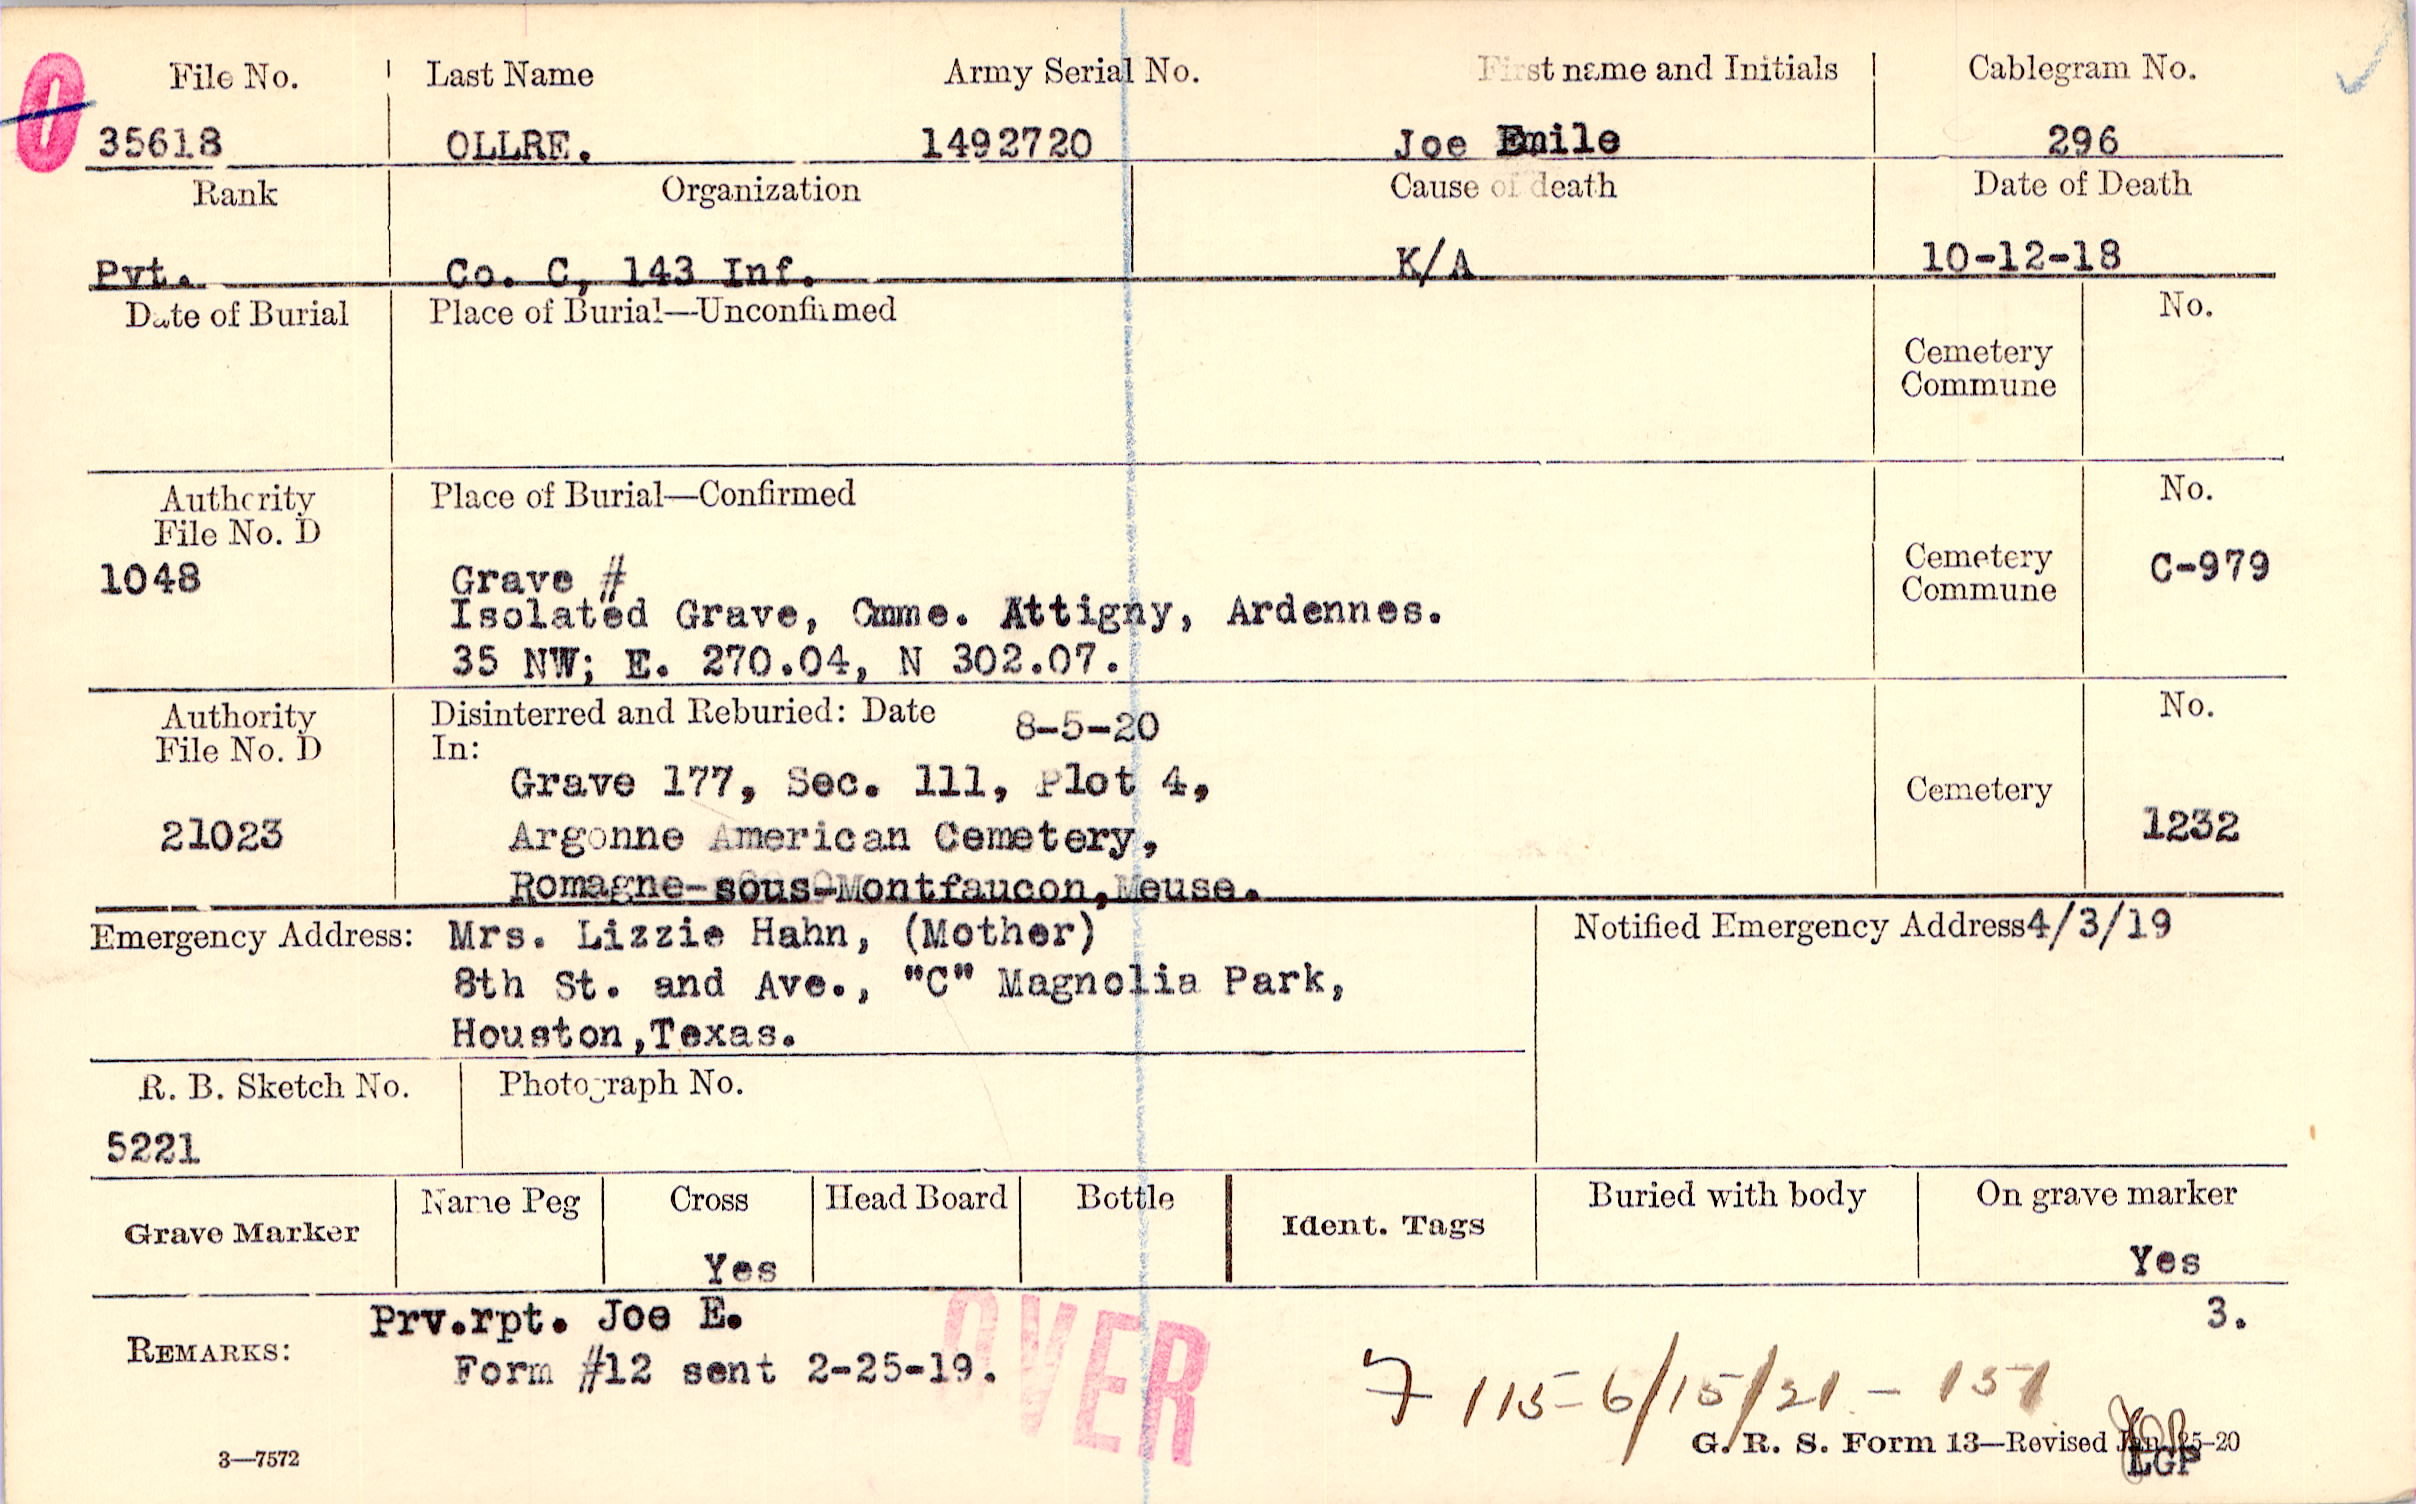 O
File No. Last Name Army Serial No. First name and Initials Cablegram No.
35618 OLLRE. 1492720 Joe Emile 296
Rank Organization Cause of death Date of Death
Pvt. Co. C, 143 Inf. K/A 10-12-18
Date of Burial Place of Burial—Unconfirmed No.
Cemetery
Commune
Authority Place of Burial—Confirmed No.
File No. D
1048 Grave # Cemetery C-979
Isolated Grave, Cmme. Attigny, Ardennes. Commune
35 NW; E. 270.04, N 302.07.
Authority Disinterred and Reburied: Date 8-5-20 No.
File No. D In:
Grave 177, Sec. 111, Plot 4, Cemetery
21023 Argonne American Cemetery, 1232
Romagne-sous-Montfaucon,Meuse.
Emergency Address: Mrs. Lizzie Hahn, (Mother) Notified Emergency Address 4/3/19
8th St. and Ave., "C" Magnolia Park,
Houston,Texas.
R. B. Sketch No. Photograph No.
5221
Grave Marker Name Peg Cross Head Board Bottle Ident. Tags Buried with body On grave marker
Yes Yes
Prv.rpt. Joe E. 3.
REMARKS: Form #12 sent 2-25-19.
OVER
7 115-6/15/21 - 151
3—7572 G. R. S. Form 13—Revised Jan. 25-20
LGP